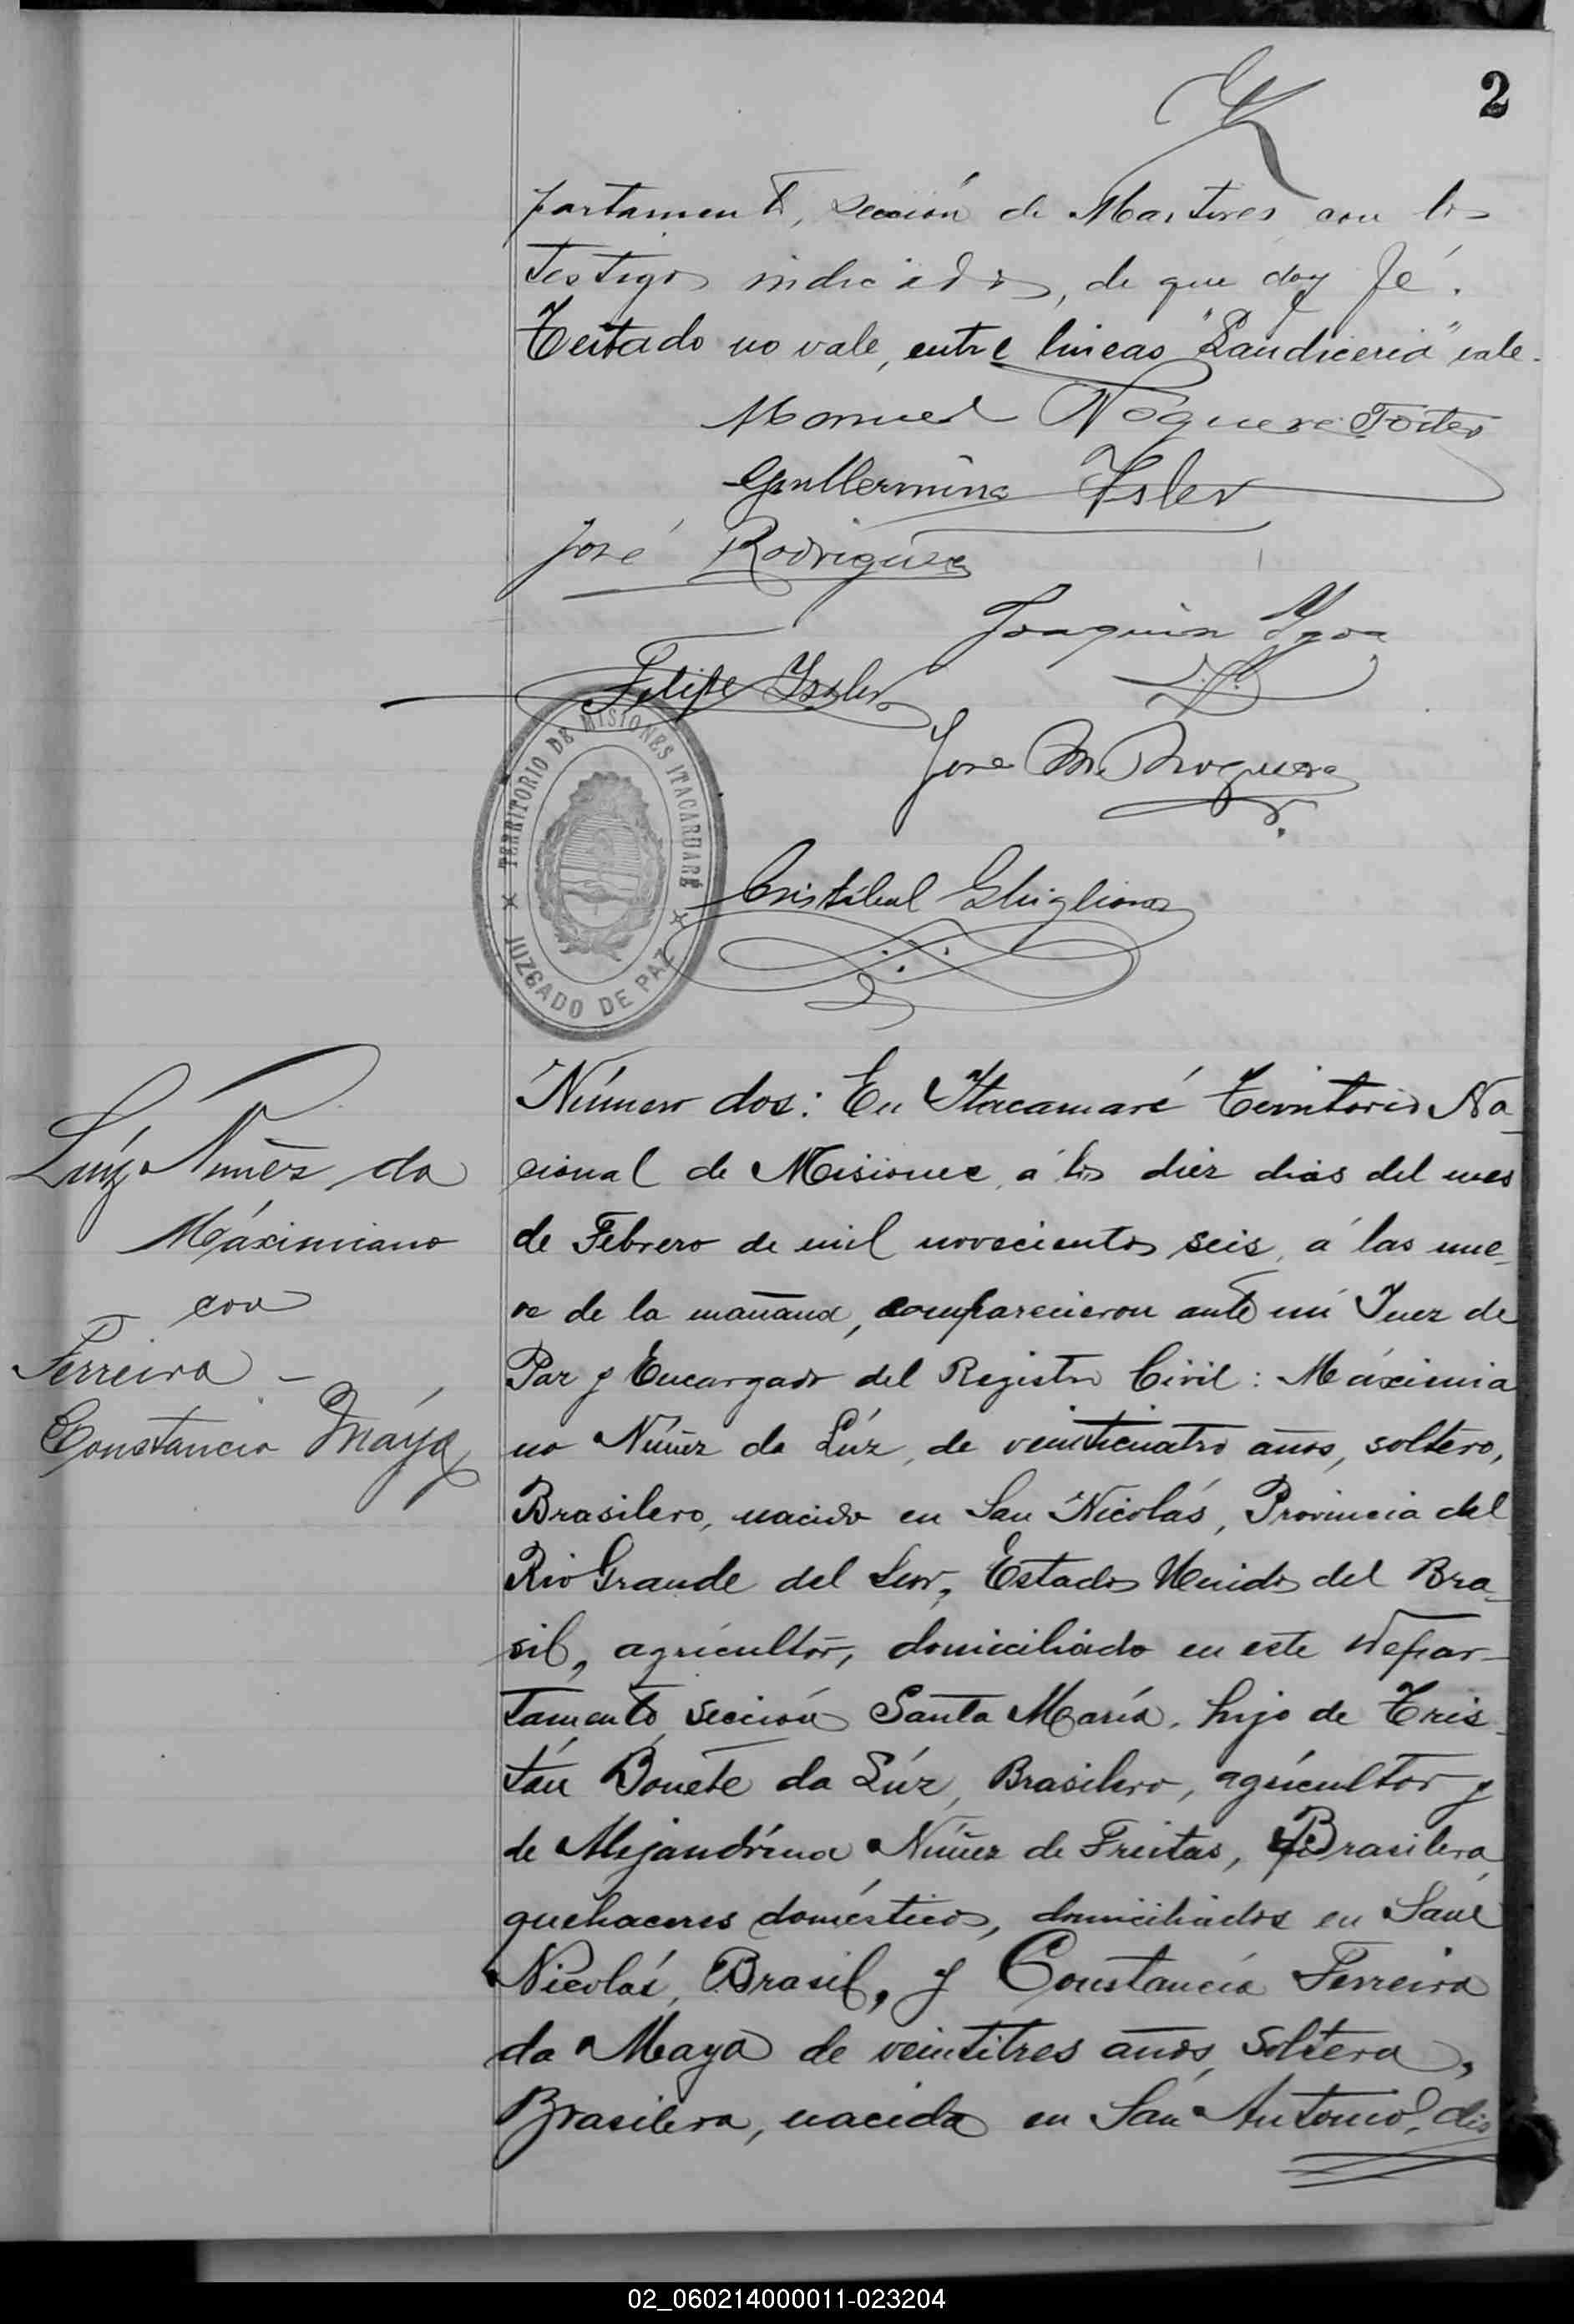 2
partamento, sección de Martires, con los
testigos indicados, de que doy fé.
Testado no vale, entre lineas "Landiceria" vale.
Manuel Noguera Fortes
Guillermina Isler
José Rodriguez
Joaquin
Felipe Issler
José M. Noguera
TERRITORIO DE MISIONES ITACARUARÉ
JUZGADO DE PAZ
Cristóbal Ghiglione
Luíz Nuñez da
Máximiano
con
Ferreira -
Constancia Máya
Número dos: En Itacamaré Territorio Na-
cional de Misiones, á los diez dias del mes
de Febrero de mil novecientos seis, á las nue-
ve de la mañana, comparecieron ante mi Juez de
Paz y Encargado del Registro Civil: Máximia
no Núñez da Lúz, de veinticuatro años, soltero,
Brasilero, nacido en San Nicolás, Provincia del
Rio Grande del Sur, Estados Unidos del Bra-
sil, agricultor, domiciliado en este Depar-
tamento, sección Santa María, hijo de Tris-
tán Donete da Lúz, Brasilero, agricultor y
de Alejandrina Núñez de Freitas, Brasilera,
quehaceres domésticos, domiciliados en San
Nicolás, Brasil, y Constancia Ferreira
da Maya de veintitres años, soltera,
Brasilera, nacida en San Antonio, dis
02_060214000011-023204